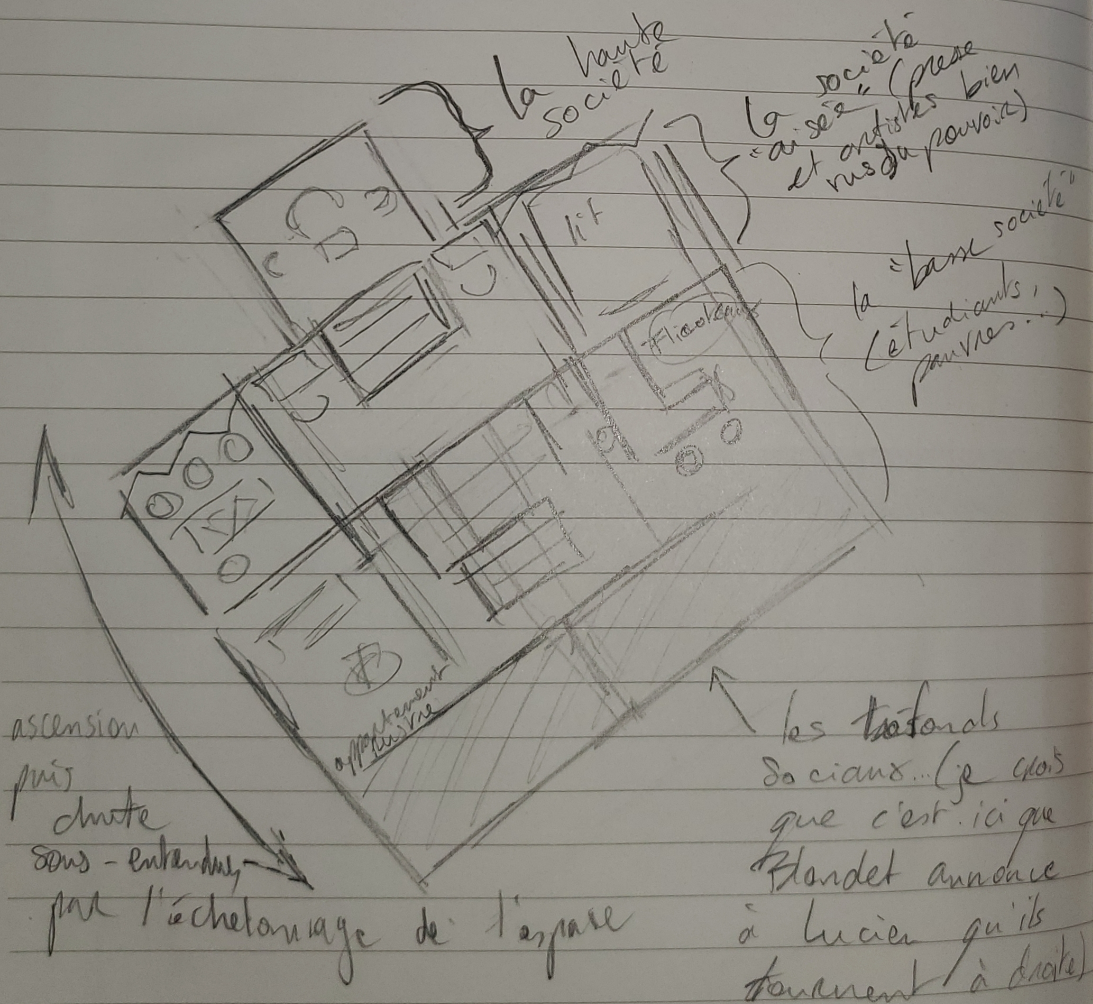 la haute
société
la société
"aisée" (presse
et artistes bien
vus du pouvoir)
la "basse société"
(étudiants,
pauvres...)
lit
Flicoteaux
appartement
ascension
puis
chute
sous-entendues
par l'échelonnage de l'espace
les tréfonds
sociaux...(je crois
que c'est ici que
Blondet annonce
à Lucien qu'ils
tournent à droite)